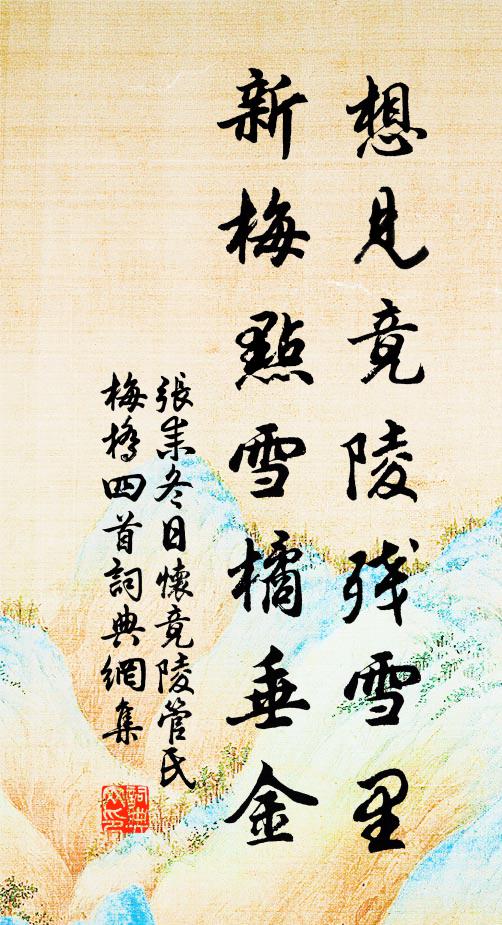 想見竟陵残雪里
新梅點雪橘垂金
張耒冬日懷竟陵管氏
梅橋四首詞典網集